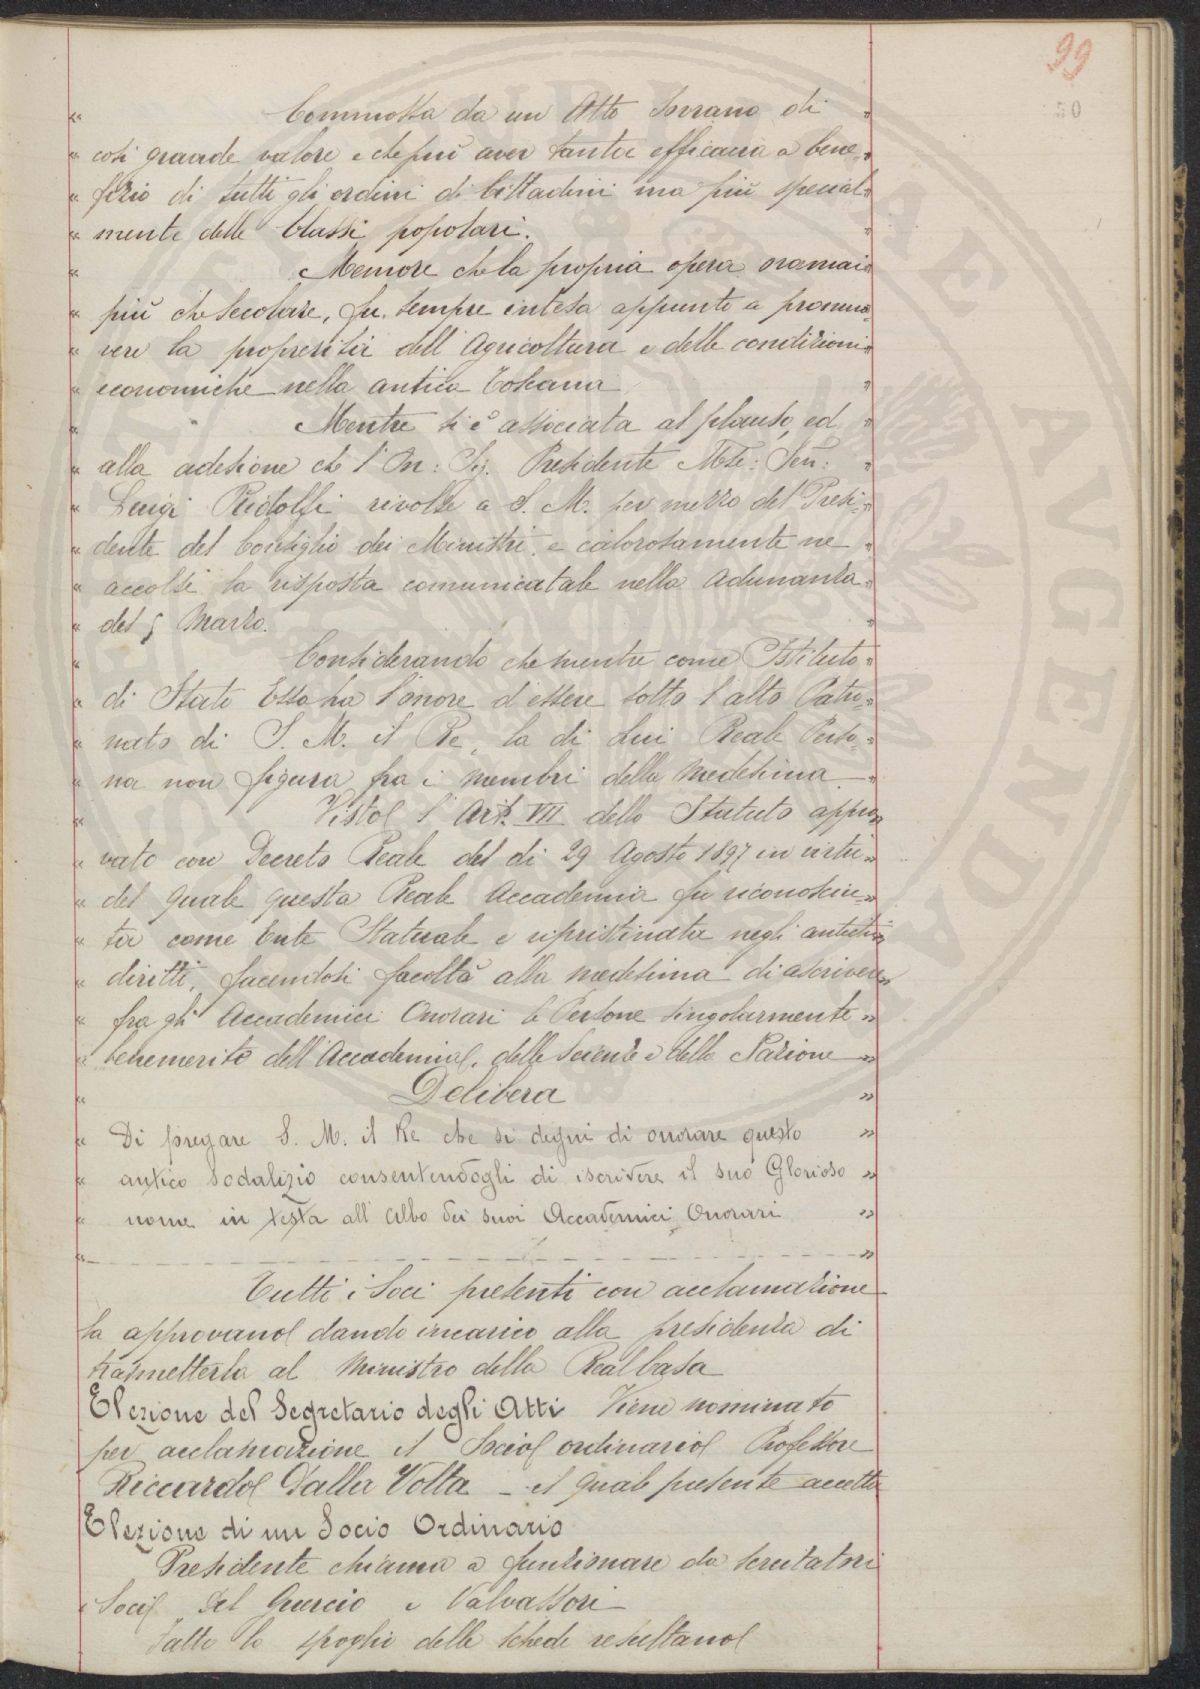 99
50
" Commossa da un Atto Sovrano di "
" così grande valore e che può aver tanta efficacia a bene- "
" fizio di tutti gli ordini di Cittadini ma più special- "
" mente delle Classi popolari. "
" Memore che la propria opera oramai "
" più che secolare, fu sempre intesa appunto a promuo- "
" vere la prosperità dell'Agricoltura e delle condizioni "
" economiche nella antica Toscana "
" Mentre si è associata al plauso, ed "
" alla adesione che l'On: Sig. Presidente Mse: Sen: "
" Luigi Ridolfi rivolse a S. M. per mezzo del Presi- "
" dente del Consiglio dei Ministri, e calorosamente ne "
" accolse la risposta comunicatale nella Adunanza "
" del 5 Marzo. "
" Considerando che mentre come Istituto "
" di Stato Essa ha l'onore d'essere sotto l'alto Patro- "
" nato di S. M. il Re, la di Lui Reale Perso- "
" na non figura fra i membri della medesima "
" Visto l'Art. VII dello Statuto appro- "
" vato con Decreto Reale del di 29 Agosto 1897 in virtù "
" del quale questa Reale Accademia fu riconosciu- "
" ta come Ente Statuale e ripristinata negli antichi "
" diritti, facendosi facoltà alla medesima di ascrivere "
" fra gli Accademici Onorari le Persone singolarmente "
" benemerite dell'Accademia, delle Scienze e della Nazione "
" Delibera "
" Di pregare S. M. il Re che si degni di onorare questo "
" antico Sodalizio consentendogli di iscrivere il suo Glorioso "
" nome in testa all'Albo dei suoi Accademici Onorari "
" "
Tutti i Soci presenti con acclamazione
la approvano dando incarico alla presidenza di
trasmetterla al Ministro della Real Casa
Elezione del Segretario degli Atti Viene nominato
per acclamazione il Socio ordinario Professore
Riccardo Dalla Volta - il quale presente accetta
Elezione di un Socio Ordinario
Presidente chiama a funzionare da scrutatori
i Soci Del Guercio e Valvassori
Fatto lo spoglio delle schede resultano